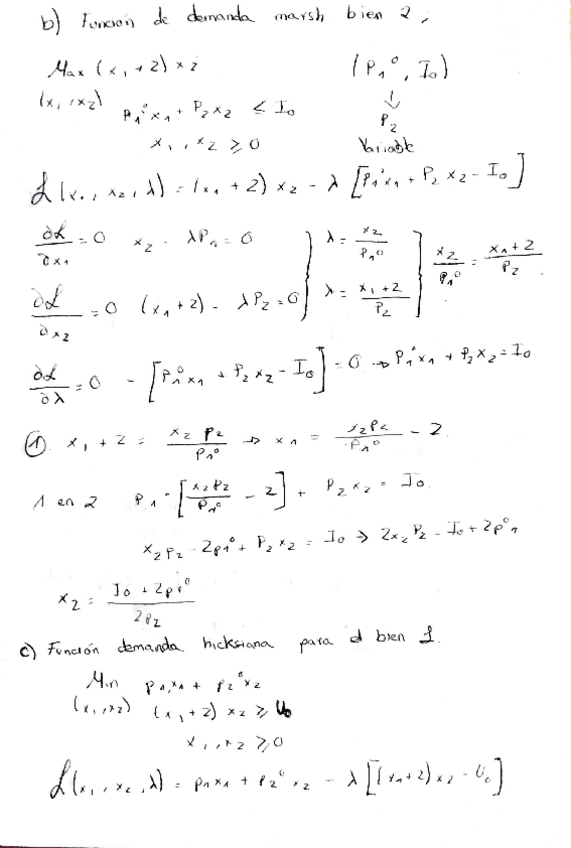 b) Función de demanda marsh bien 2,
Max (x₁ + 2) x₂ (P₁⁰, I₀)
(x₁, x₂) P₁⁰x₁ + P₂x₂ ≤ I₀ ↓ P₂
x₁, x₂ ≥ 0 Variable
L(x₁, x₂, λ) = (x₁ + 2) x₂ - λ [P₁⁰x₁ + P₂x₂ - I₀]
∂L/∂x₁ = 0 x₂ - λP₁ = 0 } λ = x₂/P₁⁰ ] x₂/P₁⁰ = x₁+2/P₂
∂L/∂x₂ = 0 (x₁+2) - λP₂ = 0 } λ = x₁+2/P₂
∂L/∂λ = 0 - [P₁⁰x₁ + P₂x₂ - I₀] = 0 → P₁⁰x₁ + P₂x₂ = I₀
① x₁ + 2 = x₂P₂/P₁⁰ → x₁ = x₂P₂/P₁⁰ - 2
1 en 2 P₁⁰ [x₂P₂/P₁⁰ - 2] + P₂x₂ = I₀.
x₂P₂ - 2p₁⁰ + P₂x₂ = I₀ → 2x₂P₂ - I₀ + 2p₁⁰
x₂ = I₀ + 2p₁⁰/2P₂
c) Función demanda hicksiana para el bien 1.
Min p₁x₁ + p₂⁰x₂
(x₁, x₂) (x₁ + 2) x₂ ≥ U₀
x₁, x₂ ≥ 0
L(x₁, x₂, λ) = p₁x₁ + p₂⁰x₂ - λ [(x₁+2)x₂ - U₀]